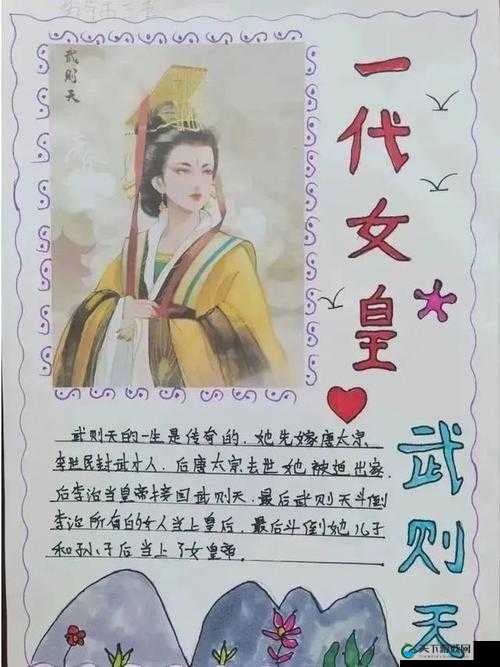 武则天
一代女皇
武则天
武则天的一生是传奇的,她先嫁唐太宗
李世民封武才人,后唐太宗去世她被迫出家,
后李治当皇帝接回武则天,最后武则天斗倒
李治所有的女人当上皇后,最后斗倒她儿子
和孙子后当上了女皇帝.
天下游戏网